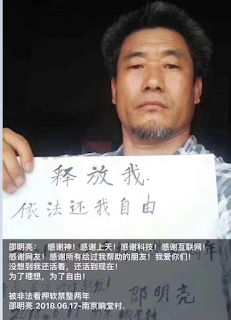 释放我.
依法还我自由
邵明亮： 感谢神！感谢上天！感谢科技！感谢互联网！
感谢网友！感谢所有给过我帮助的朋友！我爱你们！
没想到我还活着，还活到现在！
为了理想，为了自由！
邵明亮
被非法看押软禁整两年
邵明亮.2018.06.17-南京晌堂村.